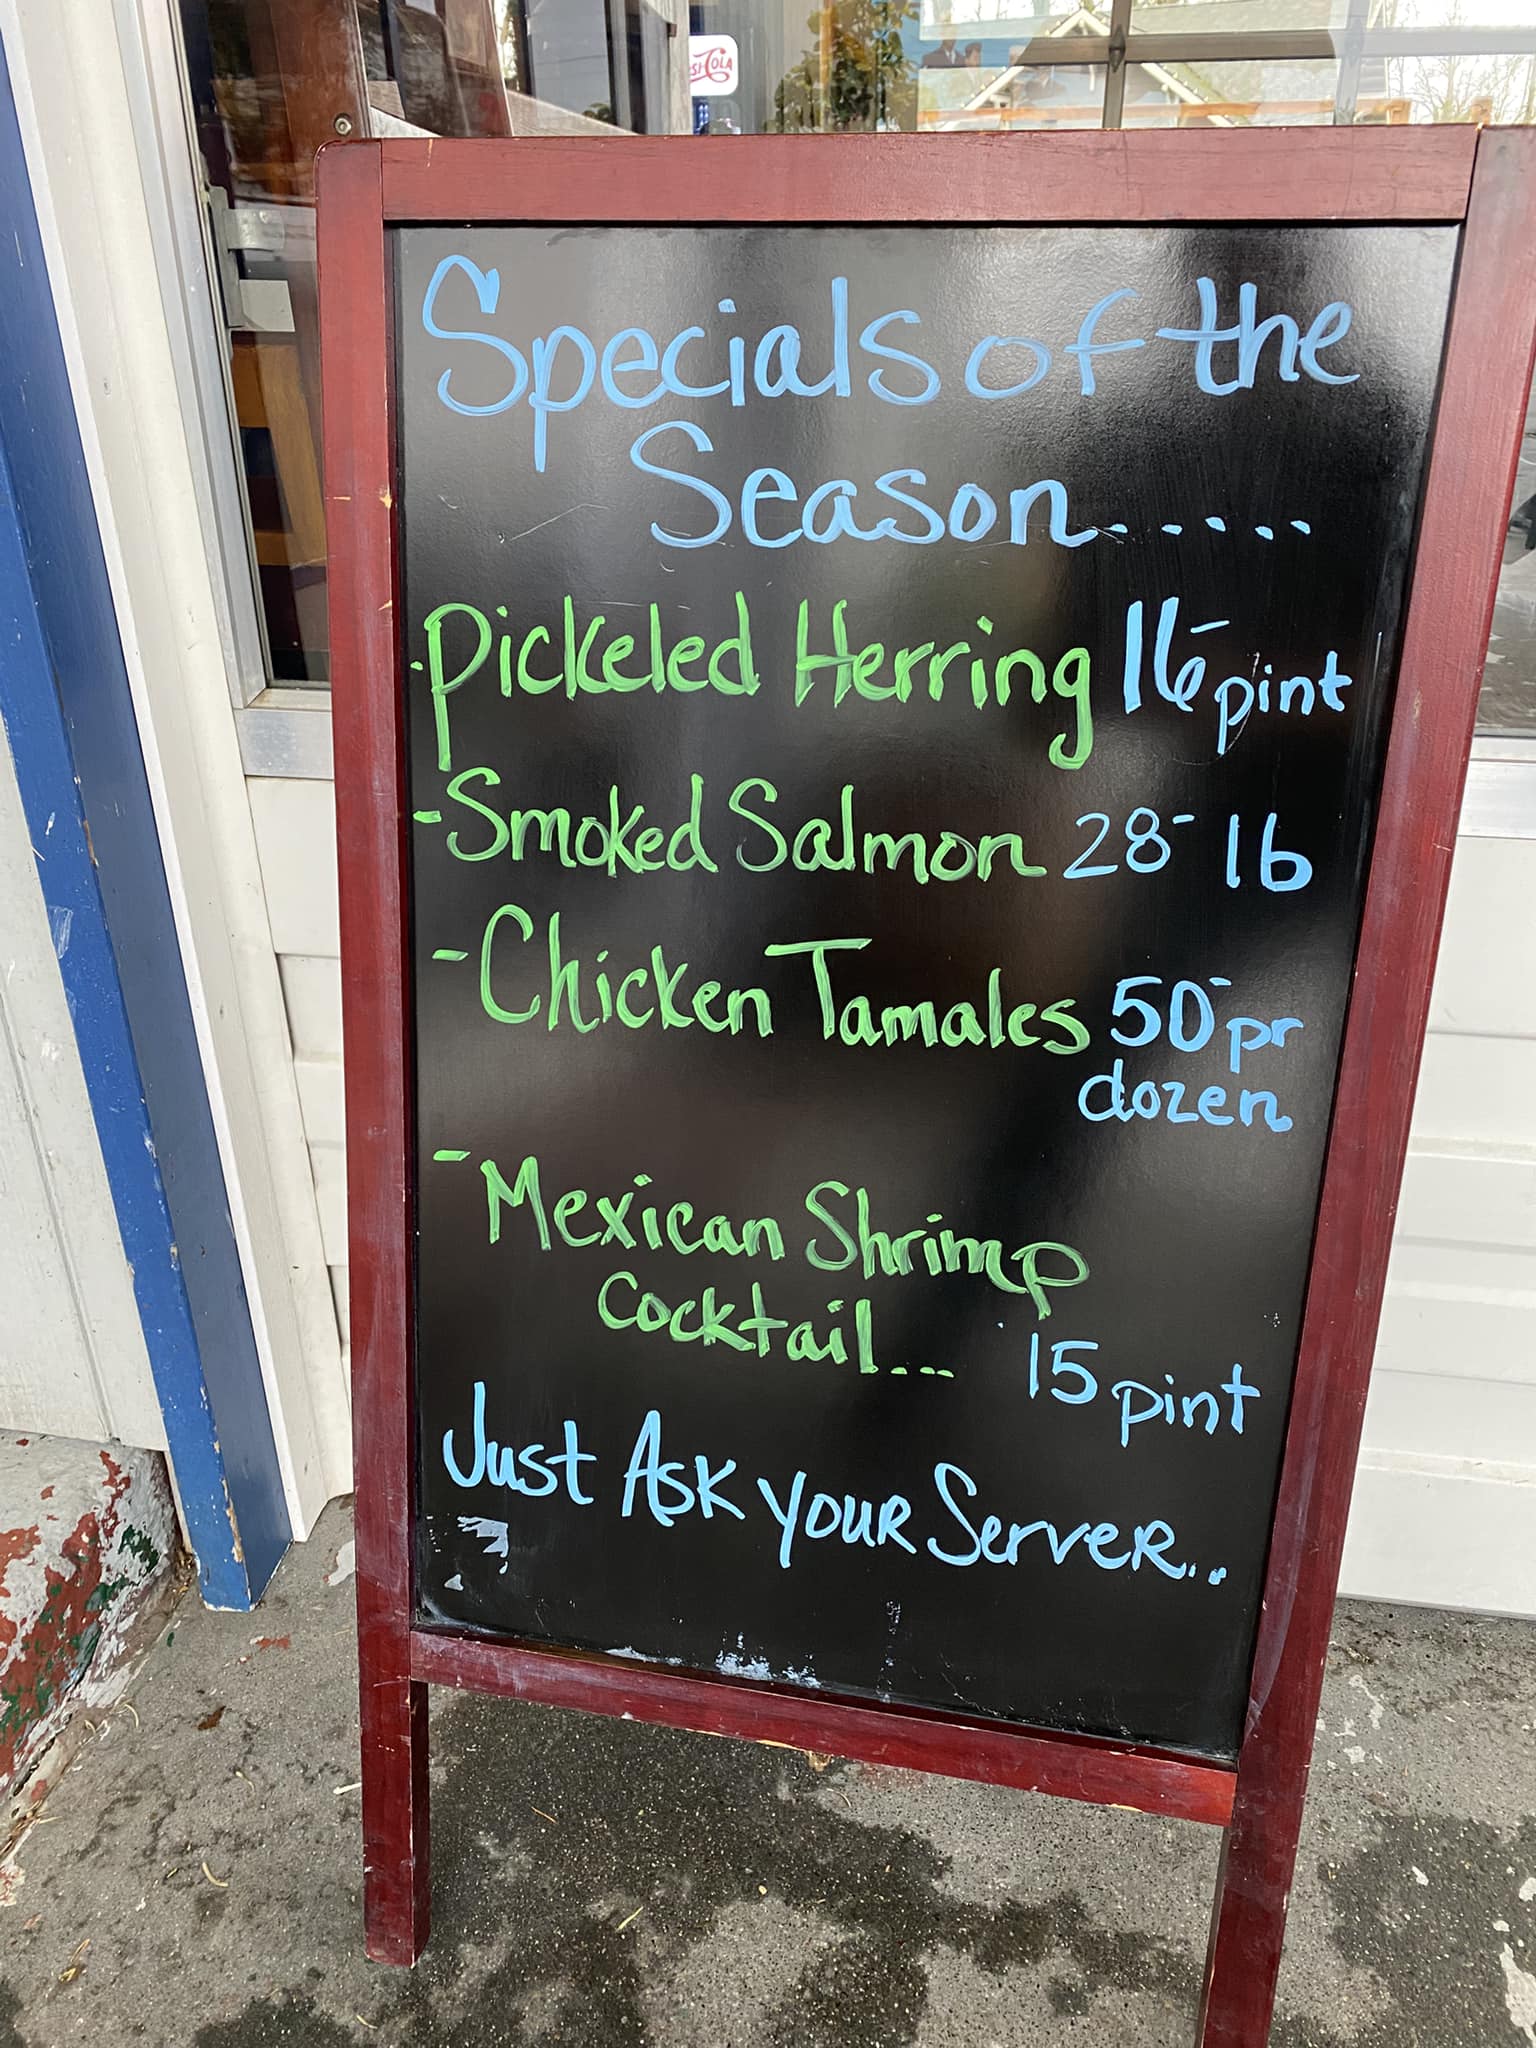 SI-COLA
Specials of the
Season.....
-Pickeled Herring 16- pint
-Smoked Salmon 28- lb
-Chicken Tamales 50- pr
dozen
-Mexican Shrimp
Cocktail... 15 pint
Just Ask Your Server...